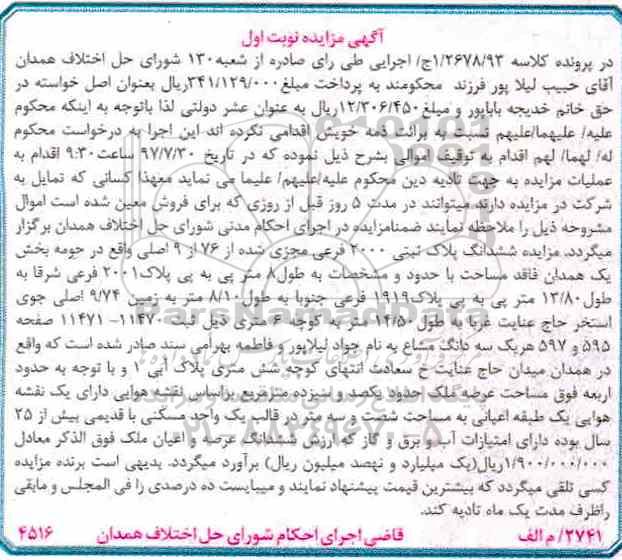 آگهی مزایده نوبت اول
در پرونده کلاسه ۱/۲۶۷۸/۹۳ج/ اجرایی طی رای صادره از شعبه ۱۳۰ شورای حل اختلاف همدان
آقای حبیب لیلا پور فرزند محکومند به پرداخت مبلغ ۳۴۱/۱۲۹/۰۰۰ریال بعنوان اصل خواسته در
حق خانم خدیجه باباپور و مبلغ ۱۲/۳۰۶/۴۵۰ریال به عنوان عشر دولتی لذا باتوجه به اینکه محکوم
علیه/ علیهما/علیهم نسبت به برائت ذمه خویش اقدامی نکرده اند این اجرا به درخواست محکوم
له/ لهما/ لهم اقدام به توقیف اموالی بشرح ذیل نموده که در تاریخ ۹۷/۷/۳۰ ساعت ۹:۳۰ اقدام به
عملیات مزایده به جهت تادیه دین محکوم علیه/علیهم/ علیما می نماید معهذا کسانی که تمایل به
شرکت در مزایده دارند میتوانند در مدت ۵ روز قبل از روزی که برای فروش معین شده است اموال
مشروحه ذیل را ملاحظه نمایند ضمنامزایده در اجرای احکام مدنی شورای حل اختلاف همدان برگزار
میگردد. مزایده ششدانگ پلاک ثبتی ۲۰۰۰ فرعی مجزی شده از ۷۶ از ۹ اصلی واقع در حومه بخش
یک همدان فاقد مساحت با حدود و مشخصات به طول۸ متر پی به پی پلاک۲۰۰۱ فرعی شرقا به
طول ۱۳/۸۰ متر پی به پی پلاک۱۹۱۹ فرعی جنوبا به طول ۸/۱۰ متر به زمین ۹/۷۴ اصلی جوی
استخر حاج عنایت غربا به طول ۱۲/۵۰ متر به کوچه ۶ متری ذیل ثبت ۱۱۴۷۰- ۱۱۴۷۱ صفحه
۵۹۵ و ۵۹۷ هریک سه دانگ مشاع به نام جواد لیلاپور و فاطمه بهرامی سند صادر شده است که واقع
در همدان میدان حاج عنایت خ سعادت انتهای کوچه شش متری پلاک آبی ۱ و با توجه به حدود
اربعه فوق مساحت عرصه ملک حدود یکصد و سیزده مترمربع براساس نقشه هوایی دارای یک نقشه
هوایی یک طبقه اعیانی به مساحت شصت و سه متر در قالب یک واحد مسکنی با قدیمی بیش از ۲۵
سال بوده دارای امتیازات آب و برق و گاز که ارزش ششدانگ عرصه و اعیان ملک فوق الذکر معادل
۱/۹۰۰/۰۰۰/۰۰۰ریال(یک میلیارد و نهصد میلیون ریال) برآورد میگردد. بدیهی است برنده مزایده
کسی تلقی میگردد که بیشترین قیمت پیشنهاد نمایند و میبایست ده درصدی را فی المجلس و مابقی
راظرف مدت یک ماه تادیه کند.
۲۷۴۱/ م الف قاضی اجرای احکام شورای حل اختلاف همدان ۴۵۱۶
ParsNamadData
۰۲۱-۸۸۳۴۹۶۷۰-۵